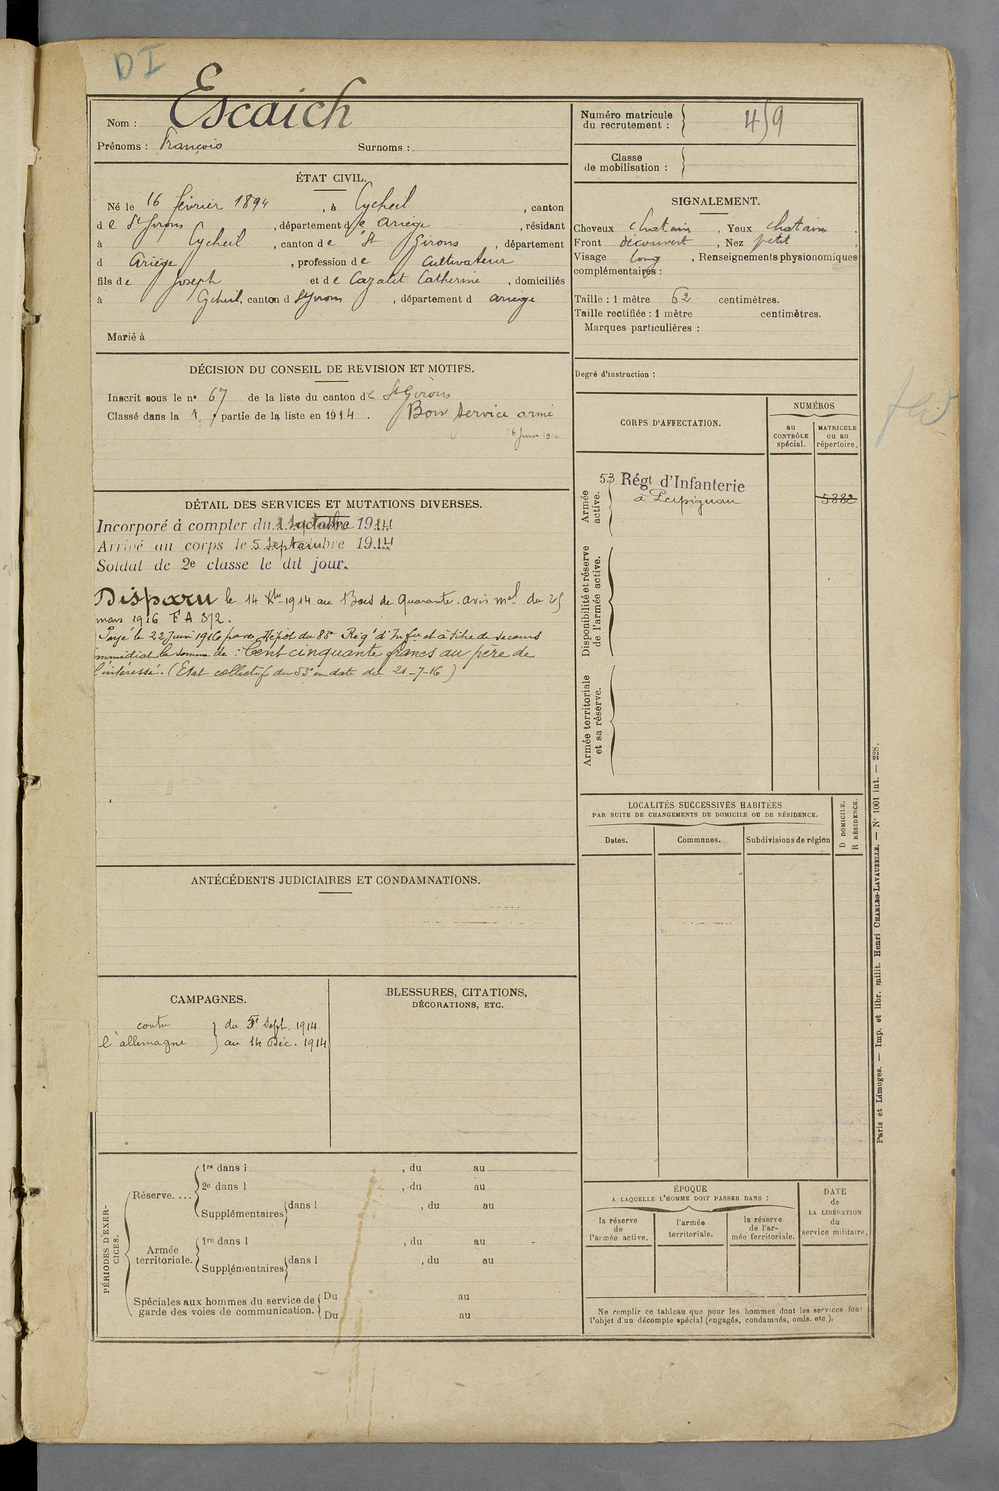 DI
Nom : Escaich
Prénoms : François Surnoms :
Numéro matricule du recrutement : 459
Classe de mobilisation :
ÉTAT CIVIL.
Né le 16 février 1894, à Eycheil, canton
de St Girons, département de Ariège, résidant
à Eycheil, canton de St Girons, département
d Ariège, profession de Cultivateur
fils de Joseph et de Cazalet Catherine, domiciliés
à Eycheil, canton d St Girons, département d Ariège
Marié à
SIGNALEMENT.
Cheveux chatain, Yeux chatain
Front découvert, Nez petit
Visage long, Renseignements physionomiques
complémentaires :
Taille : 1 mètre 62 centimètres.
Taille rectifiée : 1 mètre centimètres.
Marques particulières :
Degré d'instruction :
DÉCISION DU CONSEIL DE REVISION ET MOTIFS.
Inscrit sous le n° 67 de la liste du canton de St Girons
Classé dans la 1 partie de la liste en 1914. Bon service armé
CORPS D'AFFECTATION.
NUMÉROS
au CONTRÔLE spécial.
MATRICULE ou au répertoire.
Armée active.
53 Régt d'Infanterie
à Perpignan
5882
Disponibilité et réserve de l'armée active.
Armée territoriale et sa réserve.
DÉTAIL DES SERVICES ET MUTATIONS DIVERSES.
Incorporé à compter du 1 Septembre 1914
Arrivé au corps le 5 Septembre 1914
Soldat de 2e classe le dit jour.
Disparu le 14 Xbre 1914 au Bois de Quarante. avis mel du 25
mars 1916 F A 372.
Payé le 22 Juin 1916 par le Dépôt du 88e Rég' d'Infie et à titre de secours
immédiat la somme de : Cent cinquante francs au père de
l'intéressé. (Etat collectif du 53e en date du 21-7-16)
LOCALITÉS SUCCESSIVES HABITÉES
PAR SUITE DE CHANGEMENTS DE DOMICILE OU DE RÉSIDENCE.
Dates. Communes. Subdivisions de région
D DOMICILE.
R RÉSIDENCE.
ANTÉCÉDENTS JUDICIAIRES ET CONDAMNATIONS.
CAMPAGNES.
contre
l'allemagne
du 5 Sept. 1914
au 14 Déc. 1914
BLESSURES, CITATIONS,
DÉCORATIONS, ETC.
PÉRIODES D'EXERCICES.
Réserve....
1re dans l , du au
2e dans l , du au
Supplémentaires dans l , du au
Armée territoriale.
1re dans l , du au
Supplémentaires dans l , du au
Spéciales aux hommes du service de
garde des voies de communication.
Du au
Du au
ÉPOQUE
A LAQUELLE L'HOMME DOIT PASSER DANS :
la réserve de l'armée active.
l'armée territoriale.
la réserve de l'armée territoriale.
DATE de LA LIBÉRATION du service militaire.
Ne remplir ce tableau que pour les hommes dont les services font
l'objet d'un décompte spécial (engagés, condamnés, omis, etc.).
Paris et Limoges. — Imp. et libr. milit. Henri CHARLES-LAVAUZELLE. — N° 1001 int. — 228.